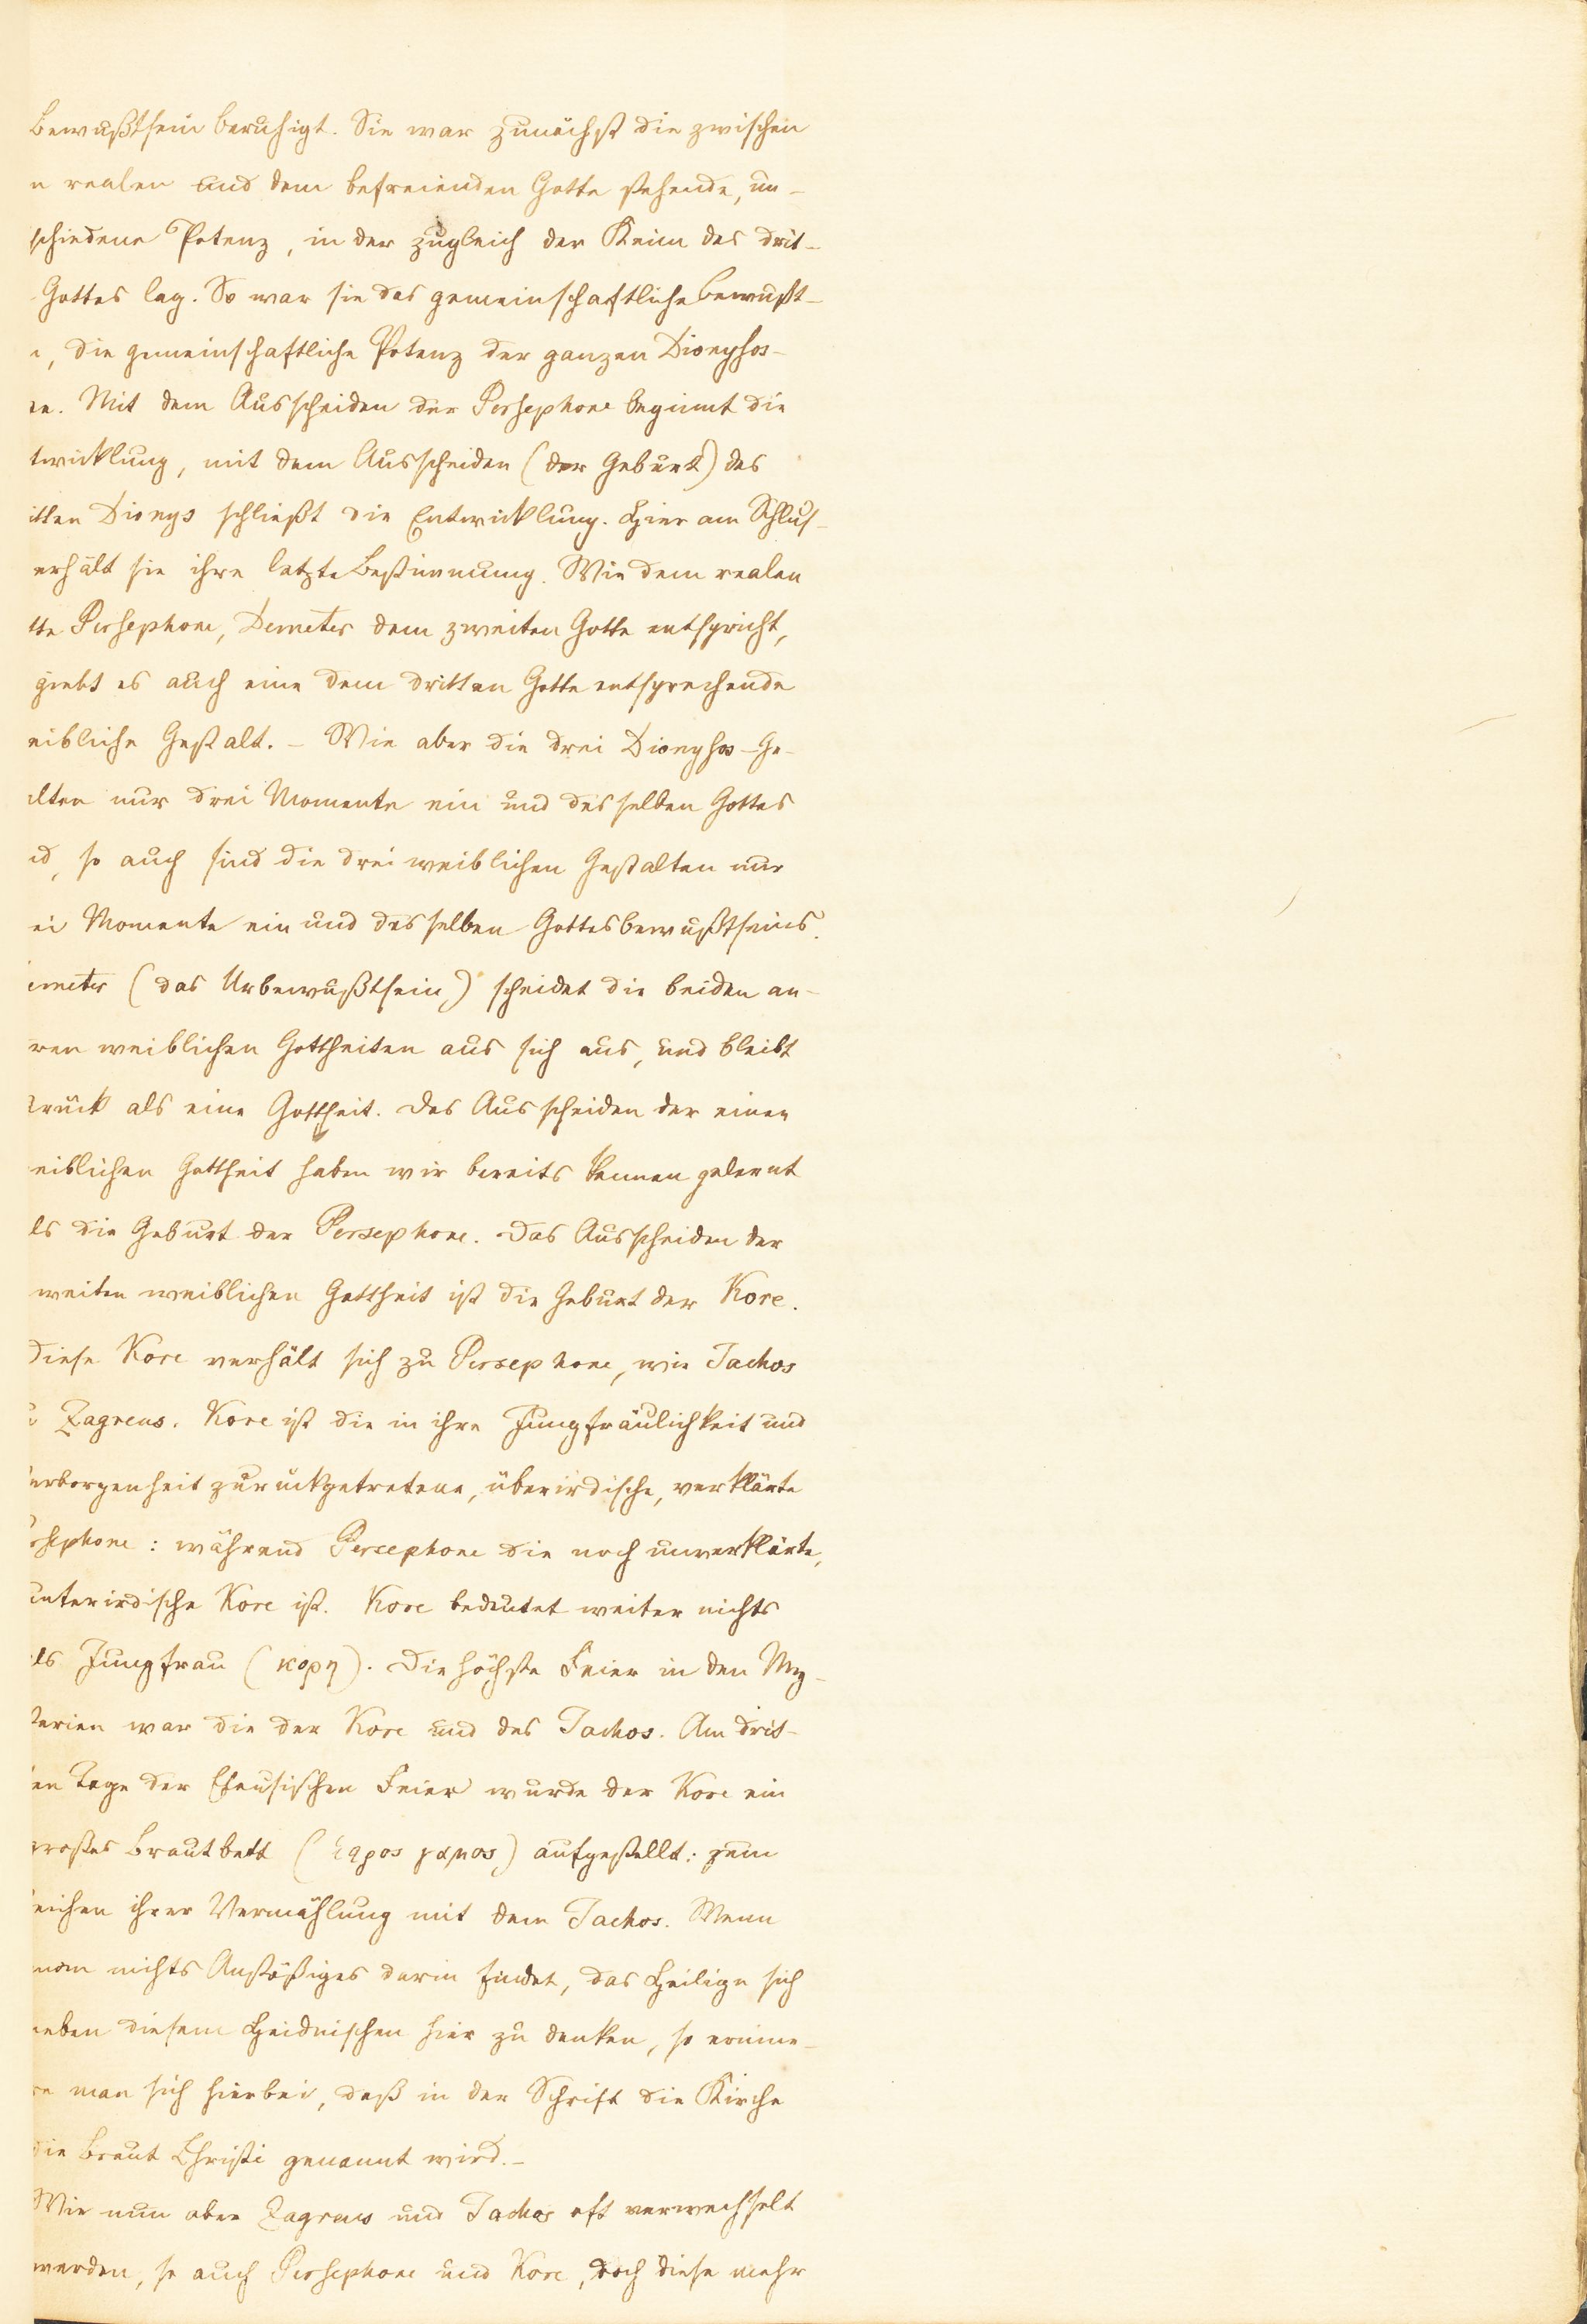 Bewußtsein beruhigt. Sie war zunächst die zwischen
n realen und dem befreienden Gotte stehende, un-
schiedene Potenz, in der zugleich der Keim des drit-
Gottes lag. So war sie das gemeinschaftliche Bewußt-
, die gemeinschaftliche Potenz der ganzen Dionysos-
en. Mit dem Ausscheiden der Persephone beginnt die
twicklung, mit dem Ausscheiden (der Geburt) des
itten Dionys schließt die Entwicklung. Hier am Schlus-
erhält sie ihre letzte Bestimmung. Wie dem realen
tte Persephone, Demeter dem zweiten Gotte entspricht,
giebt es auch eine dem dritten Gotte entsprechende
eibliche Gestalt. – Wie aber die drei Dionysos-Ge-
alten nur drei Momente ein und desselben Gottes
nd, so auch sind die drei weiblichen Gestalten nur
ei Momente ein und desselben Gottesbewußtseins.
emeter (das Urbewußtsein) scheidet die beiden an-
ren weiblichen Gottheiten aus sich aus, und bleibt
zrück als eine Gottheit. Das Ausscheiden der einen
eiblichen Gottheit haben wir bereits kennen gelernt
ls die Geburt der Persephone. Das Ausscheiden der
weiten weiblichen Gottheit ist die Geburt der Kore.
Diese Kore verhält sich zu Persephone, wie Jachos
u Zagreus. Kore ist die in ihre Jungfräulichkeit und
erborgenheit zurückgetretene, überirdische, verklärte
rsephone: während Persephone die noch unverklärte,
unterirdische Kore ist. Kore bedeutet weiter nichts
ls Jungfrau (κορη). Die höchste Feier in den My-
terien war die der Kore und des Jachos. Am drit-
en Tage der Eleusischen Feier wurde der Kore ein
großes Brautbett (ἱαρος γαμος) aufgestellt: zum
eichen ihrer Vermählung mit dem Jachos. Wenn
man nichts Anstößiges darin findet, das Heilige sich
neben diesem Heidnischen hier zu denken, so erinne-
re man sich hierbei, daß in der Schrift die Kirche
die Braut Christi genannt wird. –
Wie nun aber Zagreus und Jachos oft verwechselt
werden, so auch Persephone und Kore, doch diese mehr